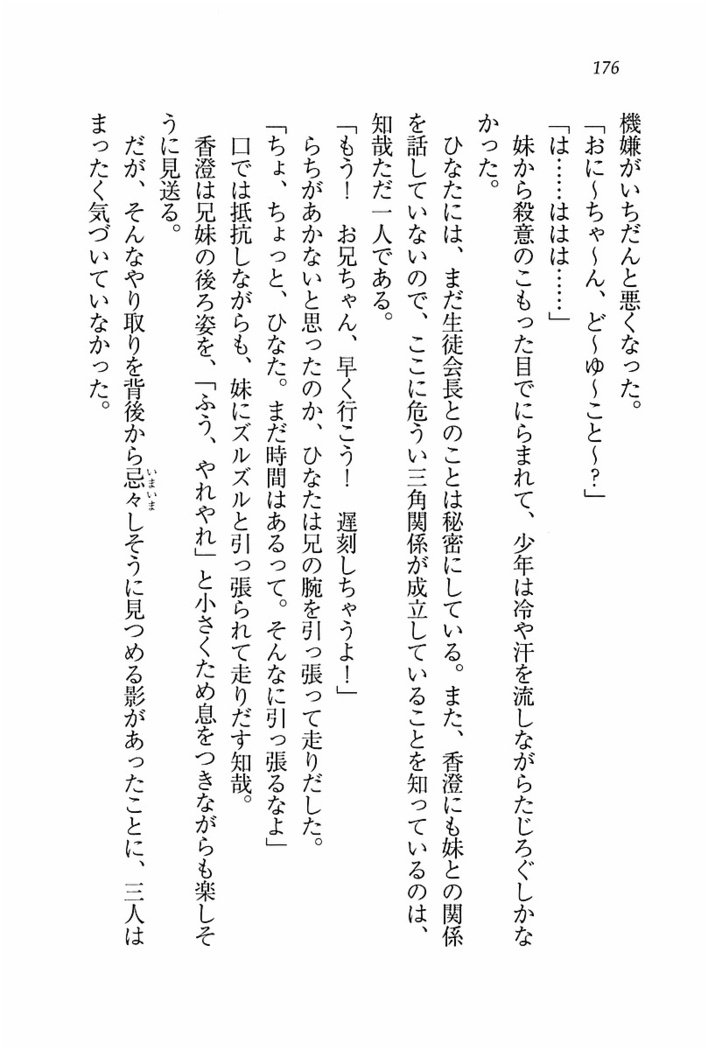 176
機嫌がいちだんと悪くなった。
「おに〜ちゃ〜ん、ど〜ゆ〜こと〜?」
「は……ははは……」
妹から殺意のこもった目でにらまれて、少年は冷や汗を流しながらたじろぐしかな
かった。
ひなたには、まだ生徒会長とのことは秘密にしている。また、香澄にも妹との関係
を話していないので、ここに危うい三角関係が成立していることを知っているのは、
知哉ただ一人である。
「もう!　お兄ちゃん、早く行こう!　遅刻しちゃうよ!」
らちがあかないと思ったのか、ひなたは兄の腕を引っ張って走りだした。
「ちょ、ちょっと、ひなた。まだ時間はあるって。そんなに引っ張るなよ」
口では抵抗しながらも、妹にズルズルと引っ張られて走りだす知哉。
香澄は兄妹の後ろ姿を、「ふう、やれやれ」と小さくため息をつきながらも楽しそ
うに見送る。
だが、そんなやり取りを背後から忌々しそうに見つめる影があったことに、三人は
いまいま
まったく気づいていなかった。